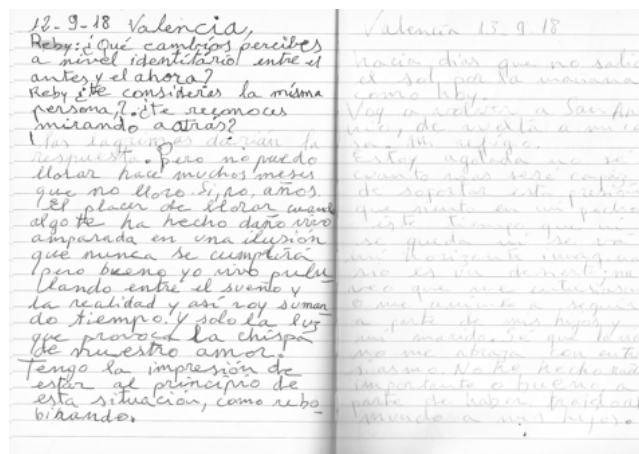 12-9-18 Valencia,
Reby: ¿Qué cambios percibes
a nivel identitario entre el
antes y el ahora?
Reby ¿te consideras la misma
persona,? ¿te reconoces
mirando a atrás?
las lagrimas darían la
respuesta. Pero no puedo
llorar hace muchos meses
que no lloro. Sipo, años
El placer de llorar cuando
algo te ha hecho daño vivo
amparada en una ilusión
que nunca se cumplirá
pero bueno yo vivo pulu-
llando entre el sueño y
la realidad y así voy suman
do tiempo. y solo la luz
que provoca la chispa
de nuestro amor.
Tengo la impresión de
estar al principio de
esta situación, como rebo-
binando.
Valencia 13-9-18
hacia dias que no salia
el sol por la mañana
como hoy.
Voy a volver a San An
nio, de vuelta a mi ca
sa. Mi refugio.
Estoy agotada no sé
cuanto mas seré capaz
de soportar esta presión
que siento en mi pecho
este tiempo que ni
se queda ni se va
mi horizonte imagina
rio es un desierto no
veo que me entusiasm
o me anime a seguir
a parte de mis hijos y
mi marido. Se que
no me abraza en entu
siasmo No he hecho nada
importante o bueno a
parte de haber traido al
mundo a mis hijos.